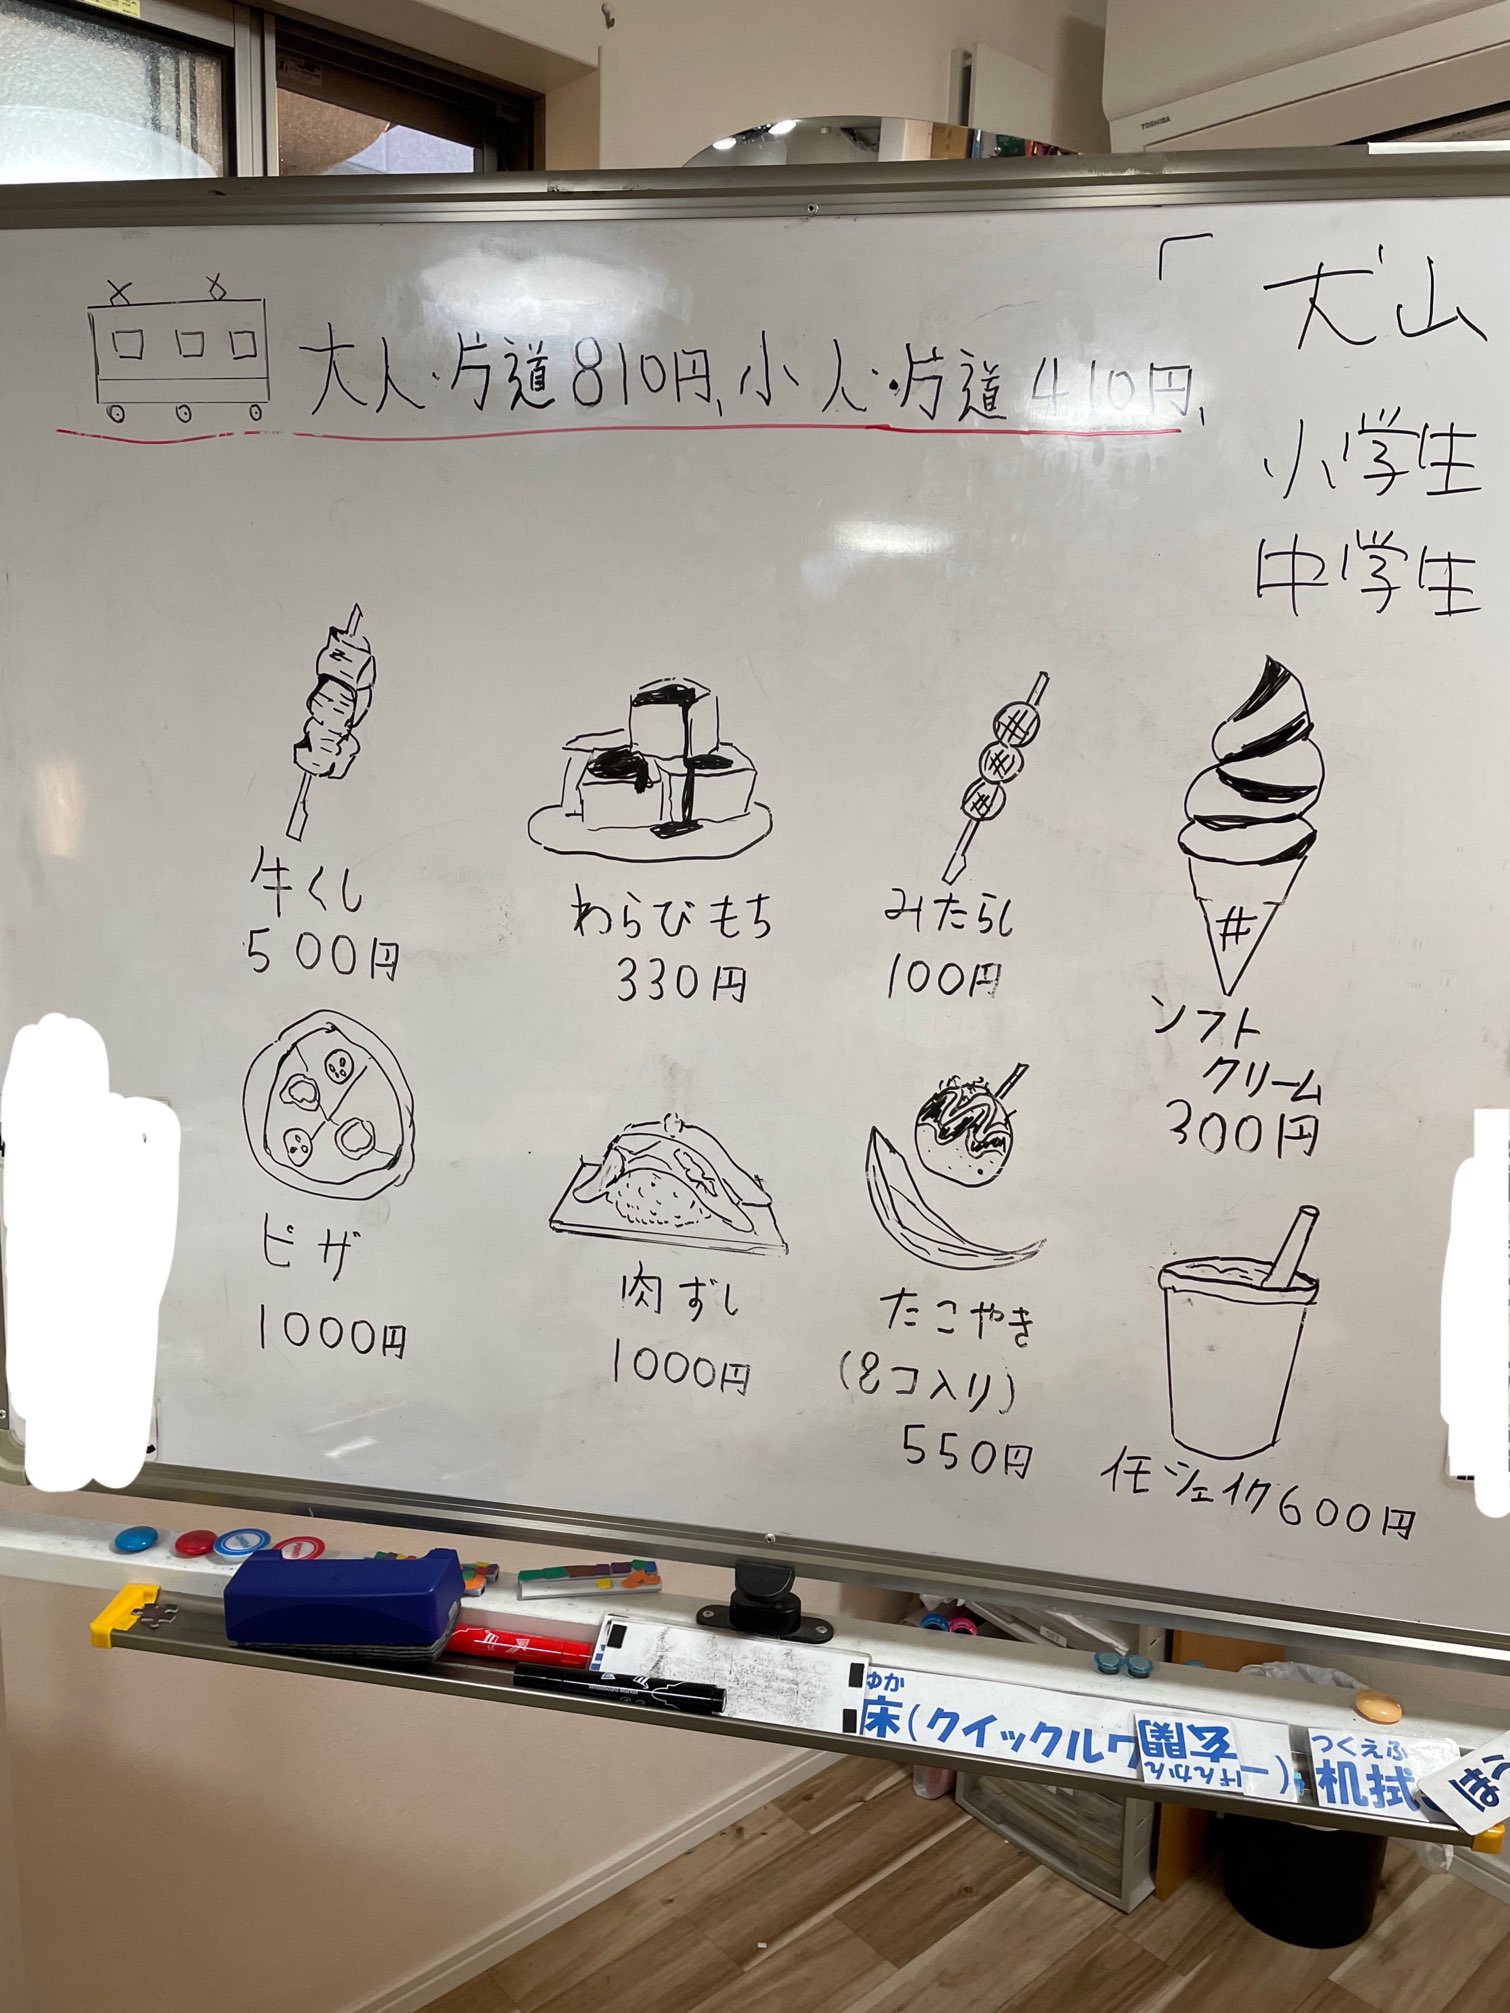 TOSHIBA
「犬山
大人・片道810円、小人・片道410円、
小学生
中学生
牛くし
500円
わらびもち
330円
みたらし
100円
ソフト
クリーム
300円
ピザ
1000円
肉ずし
1000円
たこやき
(8コ入り)
550円
イモシェイク600円
ゆか
床(クイックルワ
玄関
げんかん
つくえふ
机拭